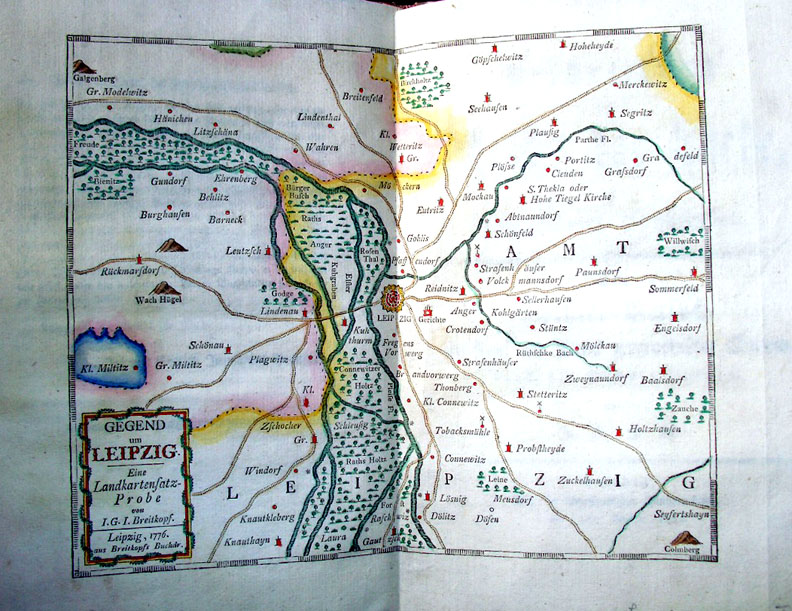 Hoheheyde
Göpschelwitz
Galgenberg
Gr. Modelwitz
Breitenfeld
Birckholtz
Merckewitz
Hänichen
Litzschöna
Lindenthal
Seehausen
Segritz
Kl.
Wetteritz
Gr.
Plausig
Parthe Fl.
Freude
Wahren
Plösse
Portitz
Cleuden
Gra defeld
Grafsdorf
Bienitz
Gundorf
Ehrenberg
Burger
Busch
Möckern
Mockau
S. Thekla oder
Hohe Tiegel Kirche
Behlitz
Burghausen
Barneck
Raths
Eutritz
Abtnaundorf
Leutzsch
Anger
Rosen
Thal
Gohlis
Schönfeld
AMT
Willwisch
Rückmarsdorf
Kuhgraben
Elster
Pfaffendorf
Strafenhäuser
Volckmannsdorf
Paunsdorf
Wach Hügel
Godge
Lindenau
LEIPZIG
Gerichte
Reidnitz
Anger
Sellerhausen
Sommerfeld
Kohlgärten
Crotendorf
Stüntz
Engelsdorf
Schönau
Kuh
thurm
Plagwitz
Kl. Miltitz
Gr. Miltitz
Rütschke Bach
Mölckau
Strafenhäuser
Zweynaundorf
Baalsdorf
Connewitzer
Holtz
Thonberg
Kl.
Pleise Fl.
Kl. Connewitz
Stetteritz
Zauche
Zschocher
Gr.
Schleusig
Tobacksmühle
Holtzhausen
Raths Holtz
Connewitz
Probstheyde
Windorf
Leine
Meusdorf
Zuckelhausen
LEIPZIG
Knautkleberg
Lösnig
Dölitz
Dösen
Seyfertshayn
Knauthayn
Laura
Colmberg
GEGEND
um
LEIPZIG.
Eine
Landkartensatz-
Probe
von
I.G.I. Breitkopf.
Leipzig, 1776.
aus Breitkopfs Buchdr.